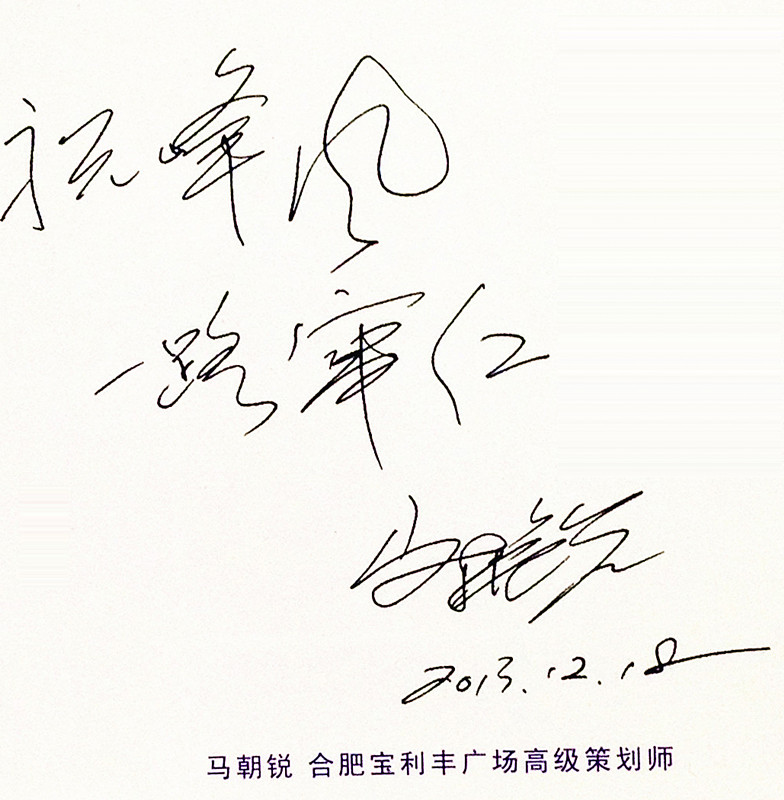 祝峰风
一路牢仁
马朝锐
2013.12.18
马朝锐 合肥宝利丰广场高级策划师